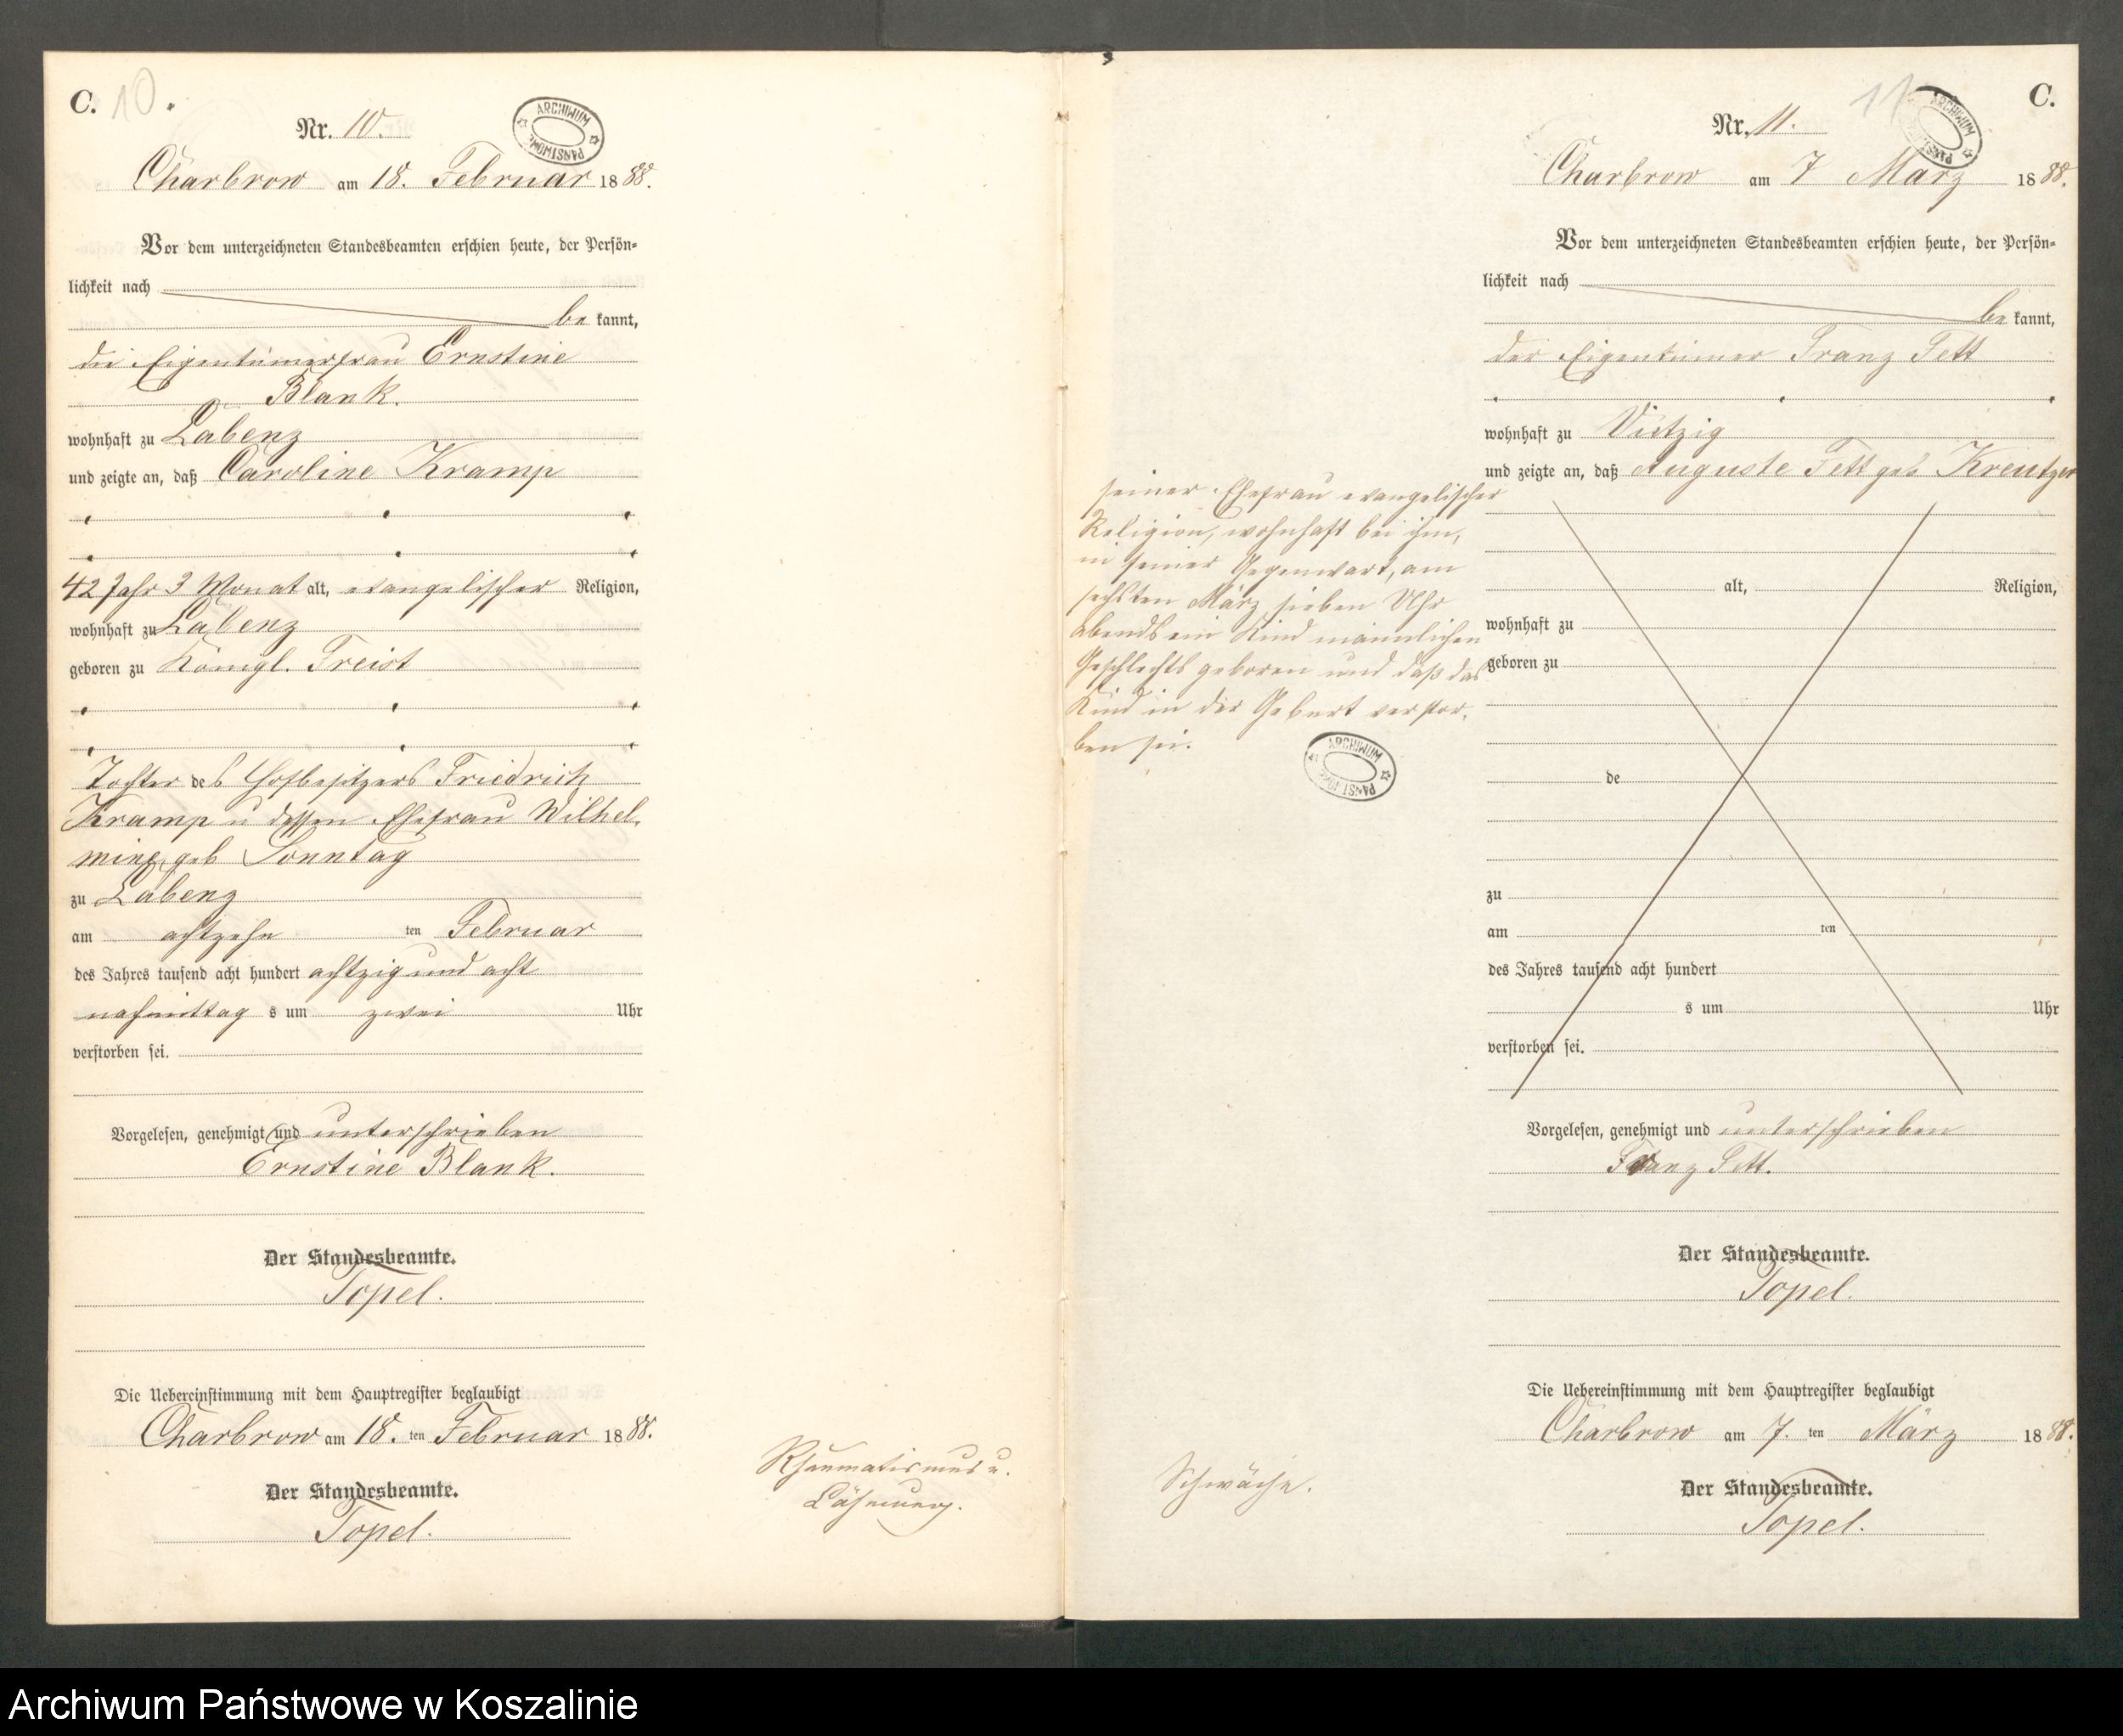 C. 10.
Nr. 10.
ARCHIWUM PAŃSTWOWE
Charbrow am 18. Februar 1888.
Vor dem unterzeichneten Standesbeamten erschien heute, der Persön-
lichkeit nach
be kannt,
die Eigentümerfrau Ernstine
Blank.
wohnhaft zu Labenz
und zeigte an, daß Caroline Kramp
42 Jahr 3 Monat alt, evangelischer Religion,
wohnhaft zu Labenz
geboren zu Königl. Freist
Tochter des Hofbesitzers Friedrich
Kramp u dessen Ehefrau Wilhel-
mine geb Sonntag
zu Labenz
am achtzehn ten Februar
des Jahres tausend acht hundert achtzig und acht
nachmittag s um zwei Uhr
verstorben sei.
Vorgelesen, genehmigt und unterschrieben
Ernstine Blank.
Der Standesbeamte.
Topel.
Die Uebereinstimmung mit dem Hauptregister beglaubigt
Charbrow am 18. ten Februar 1888.
Der Standesbeamte.
Topel.
Rheumatismus u.
Lähmung.
11 C.
Nr. 11.
ARCHIWUM PAŃSTWOWE
Charbrow am 7 März 1888.
Vor dem unterzeichneten Standesbeamten erschien heute, der Persön-
lichkeit nach
be kannt,
der Eigentümer Franz Fett
wohnhaft zu Vietzig
und zeigte an, daß Auguste Fett geb Kreutzer
seiner Ehefrau evangelischer
Religion, wohnhaft bei ihm,
in seiner Gegenwart, am
sechsten März sieben Uhr
abends ein Kind männlichen
Geschlechts geboren und daß das
Kind in der Geburt verstor-
ben sei.
ARCHIWUM PAŃSTWOWE
alt, Religion,
wohnhaft zu
geboren zu
de
zu
am ten
des Jahres tausend acht hundert
s um Uhr
verstorben sei.
Vorgelesen, genehmigt und unterschrieben
Franz Fett.
Der Standesbeamte.
Topel.
Die Uebereinstimmung mit dem Hauptregister beglaubigt
Charbrow am 7. ten März 1888.
Der Standesbeamte.
Topel.
Schwäche.
Archiwum Państwowe w Koszalinie